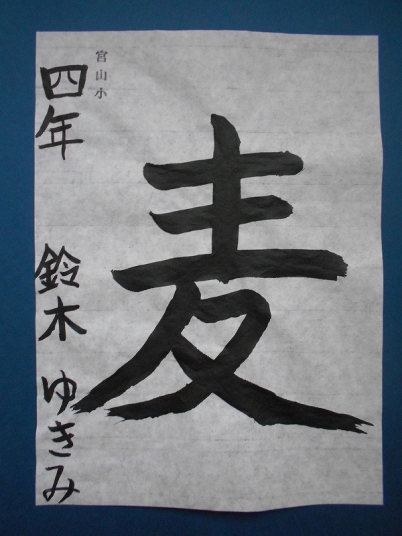 麦
宮山小
四年 鈴木 ゆきみ